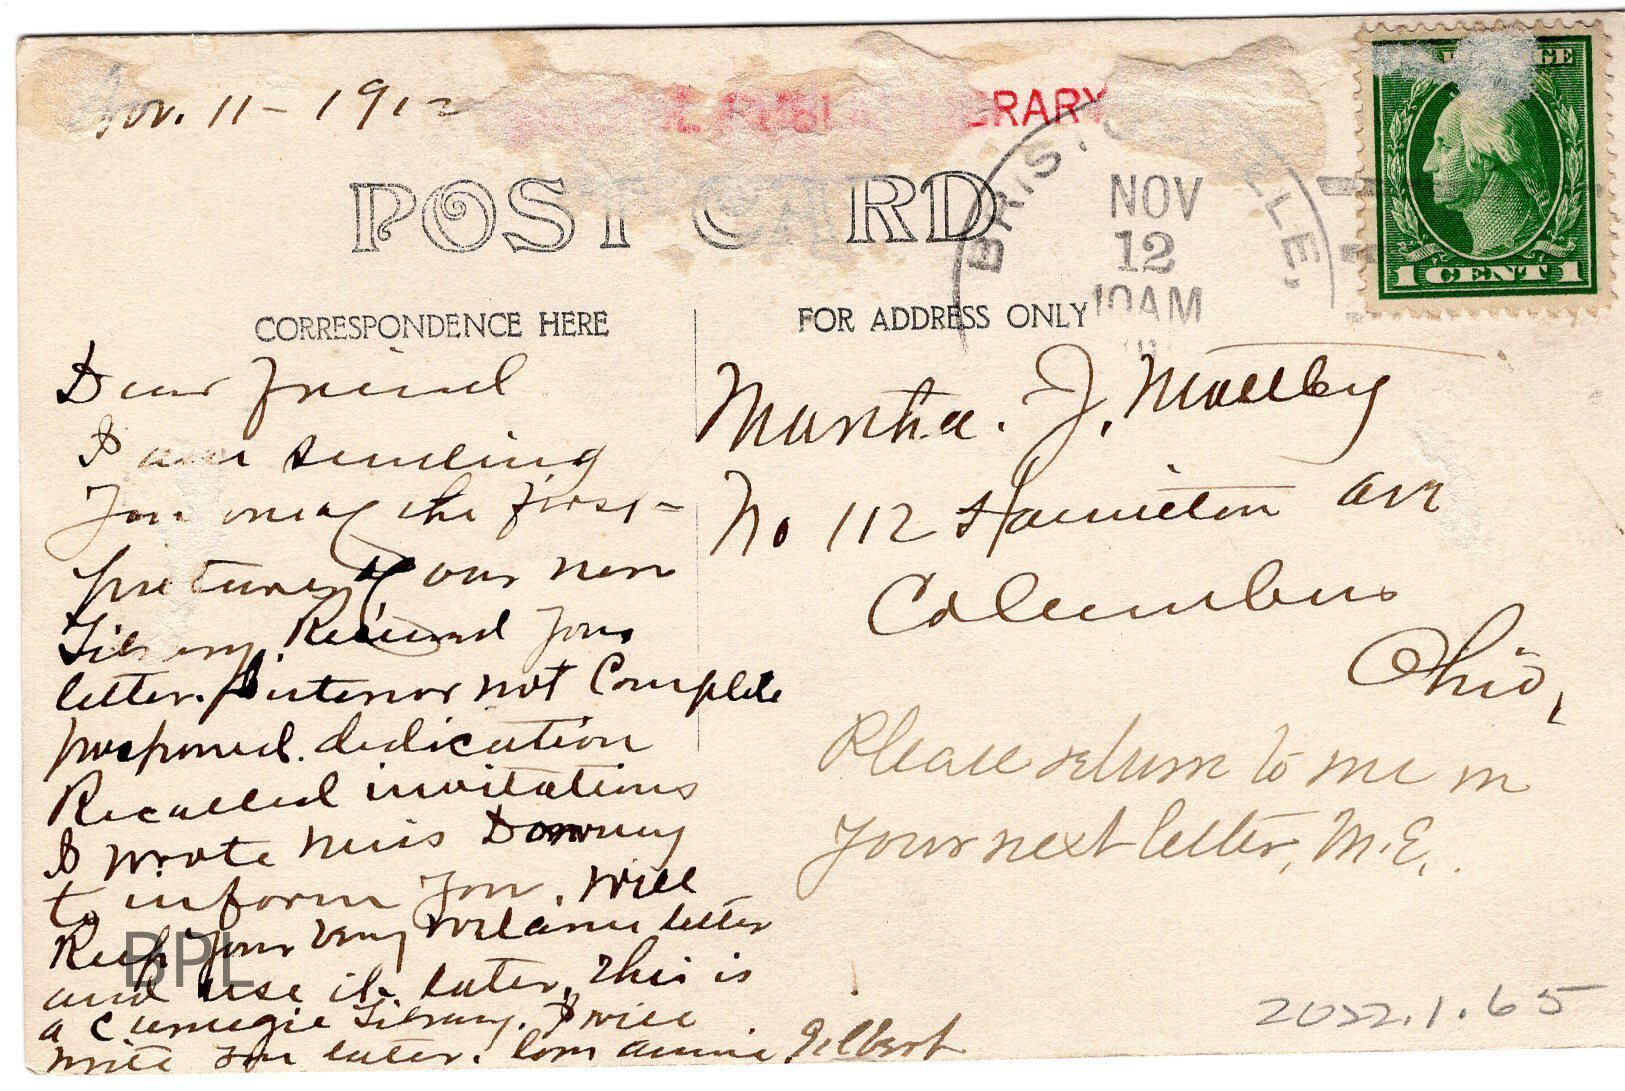 Nov. 11 - 1912
PUBLIC LIBRARY
POST CARD
BRIS LLE,
NOV
12
10AM
GE
1 CENT 1
CORRESPONDENCE HERE
FOR ADDRESS ONLY
Dear friend
I am sending
You one of the first
pictures of our new
Library. Received your
letter. Interior not Complete
postponed. dedication
Recalled invitations
I wrote Miss Downey
to inform You. Will
Keep Your Very welcome letter
and use it later, This is
a Carnegie Library. I will
write You later. Gilbert
Martha. J. Maltby
No 112 Hamilton Ave
Columbus
Ohio,
Please return to me in
Your next letter, M.E.
BPL
2022.1.65